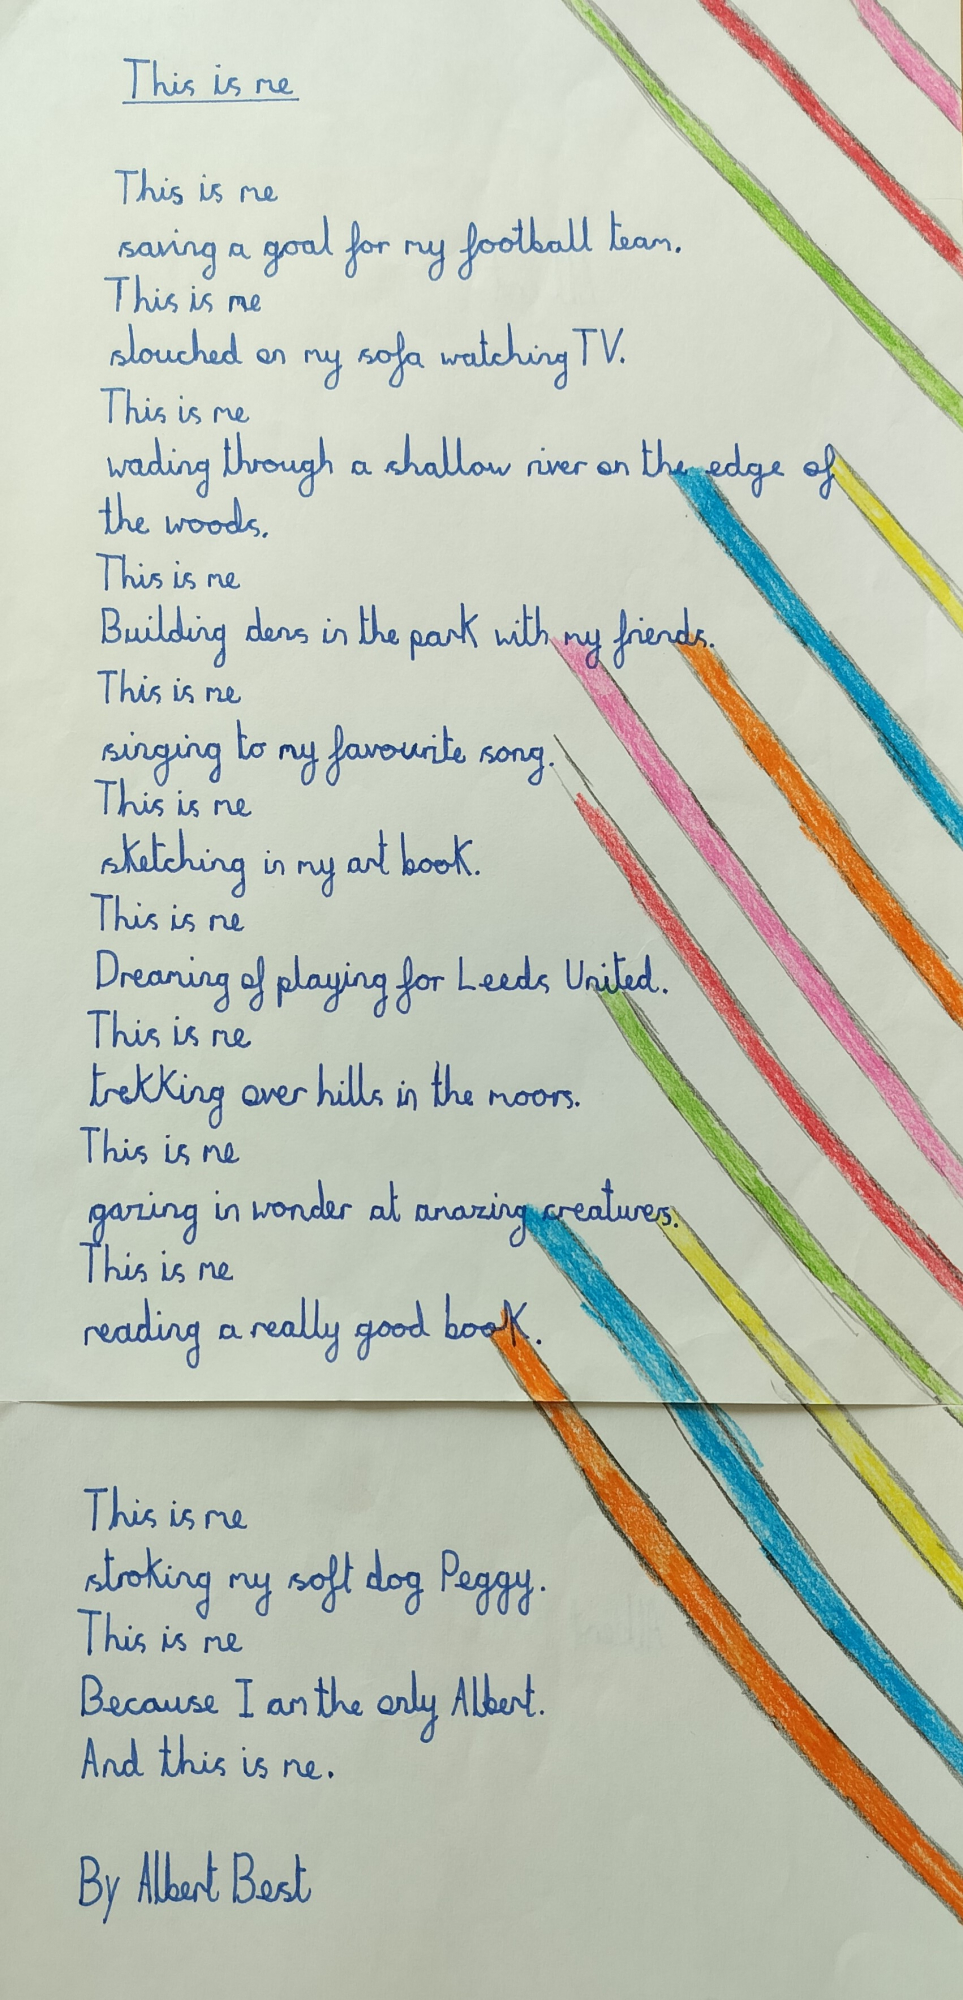 This is me
This is me
saving a goal for my football team.
This is me
slouched on my sofa watching TV.
This is me
wading through a shallow river on the edge of
the woods.
This is me
Building dens in the park with my friends.
This is me
singing to my favourite song.
This is me
sketching in my art book.
This is me
Dreaming of playing for Leeds United.
This is me
trekking over hills in the moors.
This is me
gazing in wonder at amazing creatures.
This is me
reading a really good book.
This is me
stroking my soft dog Peggy.
This is me
Because I am the only Albert.
And this is me.
By Albert Best